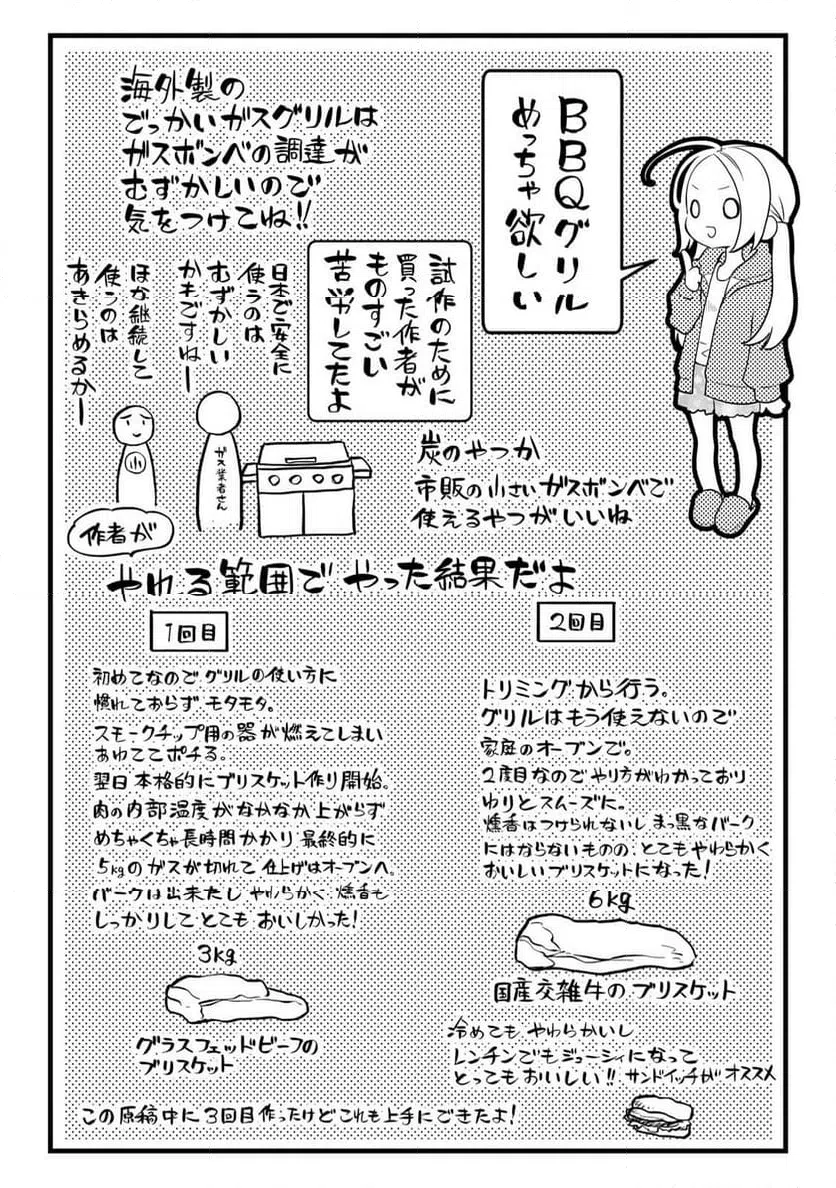 BBQグリル
めっちゃ欲しい
海外製の
でっかいガスグリルは
ガスボンベの調達が
むずかしいので
気をつけてね!!
試作のために
買った作者が
ものすごい
苦労してたよ
日本で安全に
使うのは
むずかしい
かもですねー
ほな継続して
使うのは
あきらめるかー
山
ガス業者さん
炭のやつか
市販の小さいガスボンベで
使えるやつがいいね
作者が
やれる範囲でやった結果だよ
1回目
初めてなのでグリルの使い方に
慣れておらずモタモタ。
スモークチップ用の器が燃えてしまい
あわててポチる。
翌日本格的にブリスケット作り開始。
肉の内部温度がなかなか上がらず
めちゃくちゃ長時間かかり最終的に
5kgのガスが切れて仕上げはオーブンへ。
バークは出来たしやわらかく燻香も
しっかりしてとてもおいしかった!
3kg
グラスフェッドビーフの
ブリスケット
2回目
トリミングから行う。
グリルはもう使えないので
家庭のオーブンで。
2度目なのでやり方がわかっており
わりとスムーズに。
燻香はつけられないしまっ黒なバーク
にはならないものの、とてもやわらかく
おいしいブリスケットになった!
6kg
国産交雑牛のブリスケット
冷めてもやわらかいし
レンチンでもジューシィになって
とってもおいしい!!サンドイッチがオススメ
この原稿中に3回目作ったけどこれも上手にできたよ!